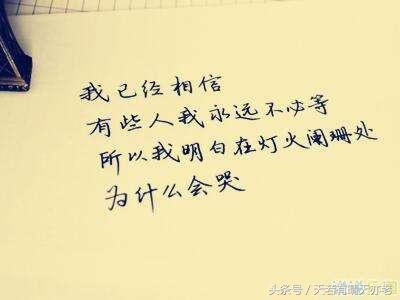 我已经相信
有些人我永远不必等
所以我明白在灯火阑珊处
为什么会哭
头条号 / 天若有晴天亦老